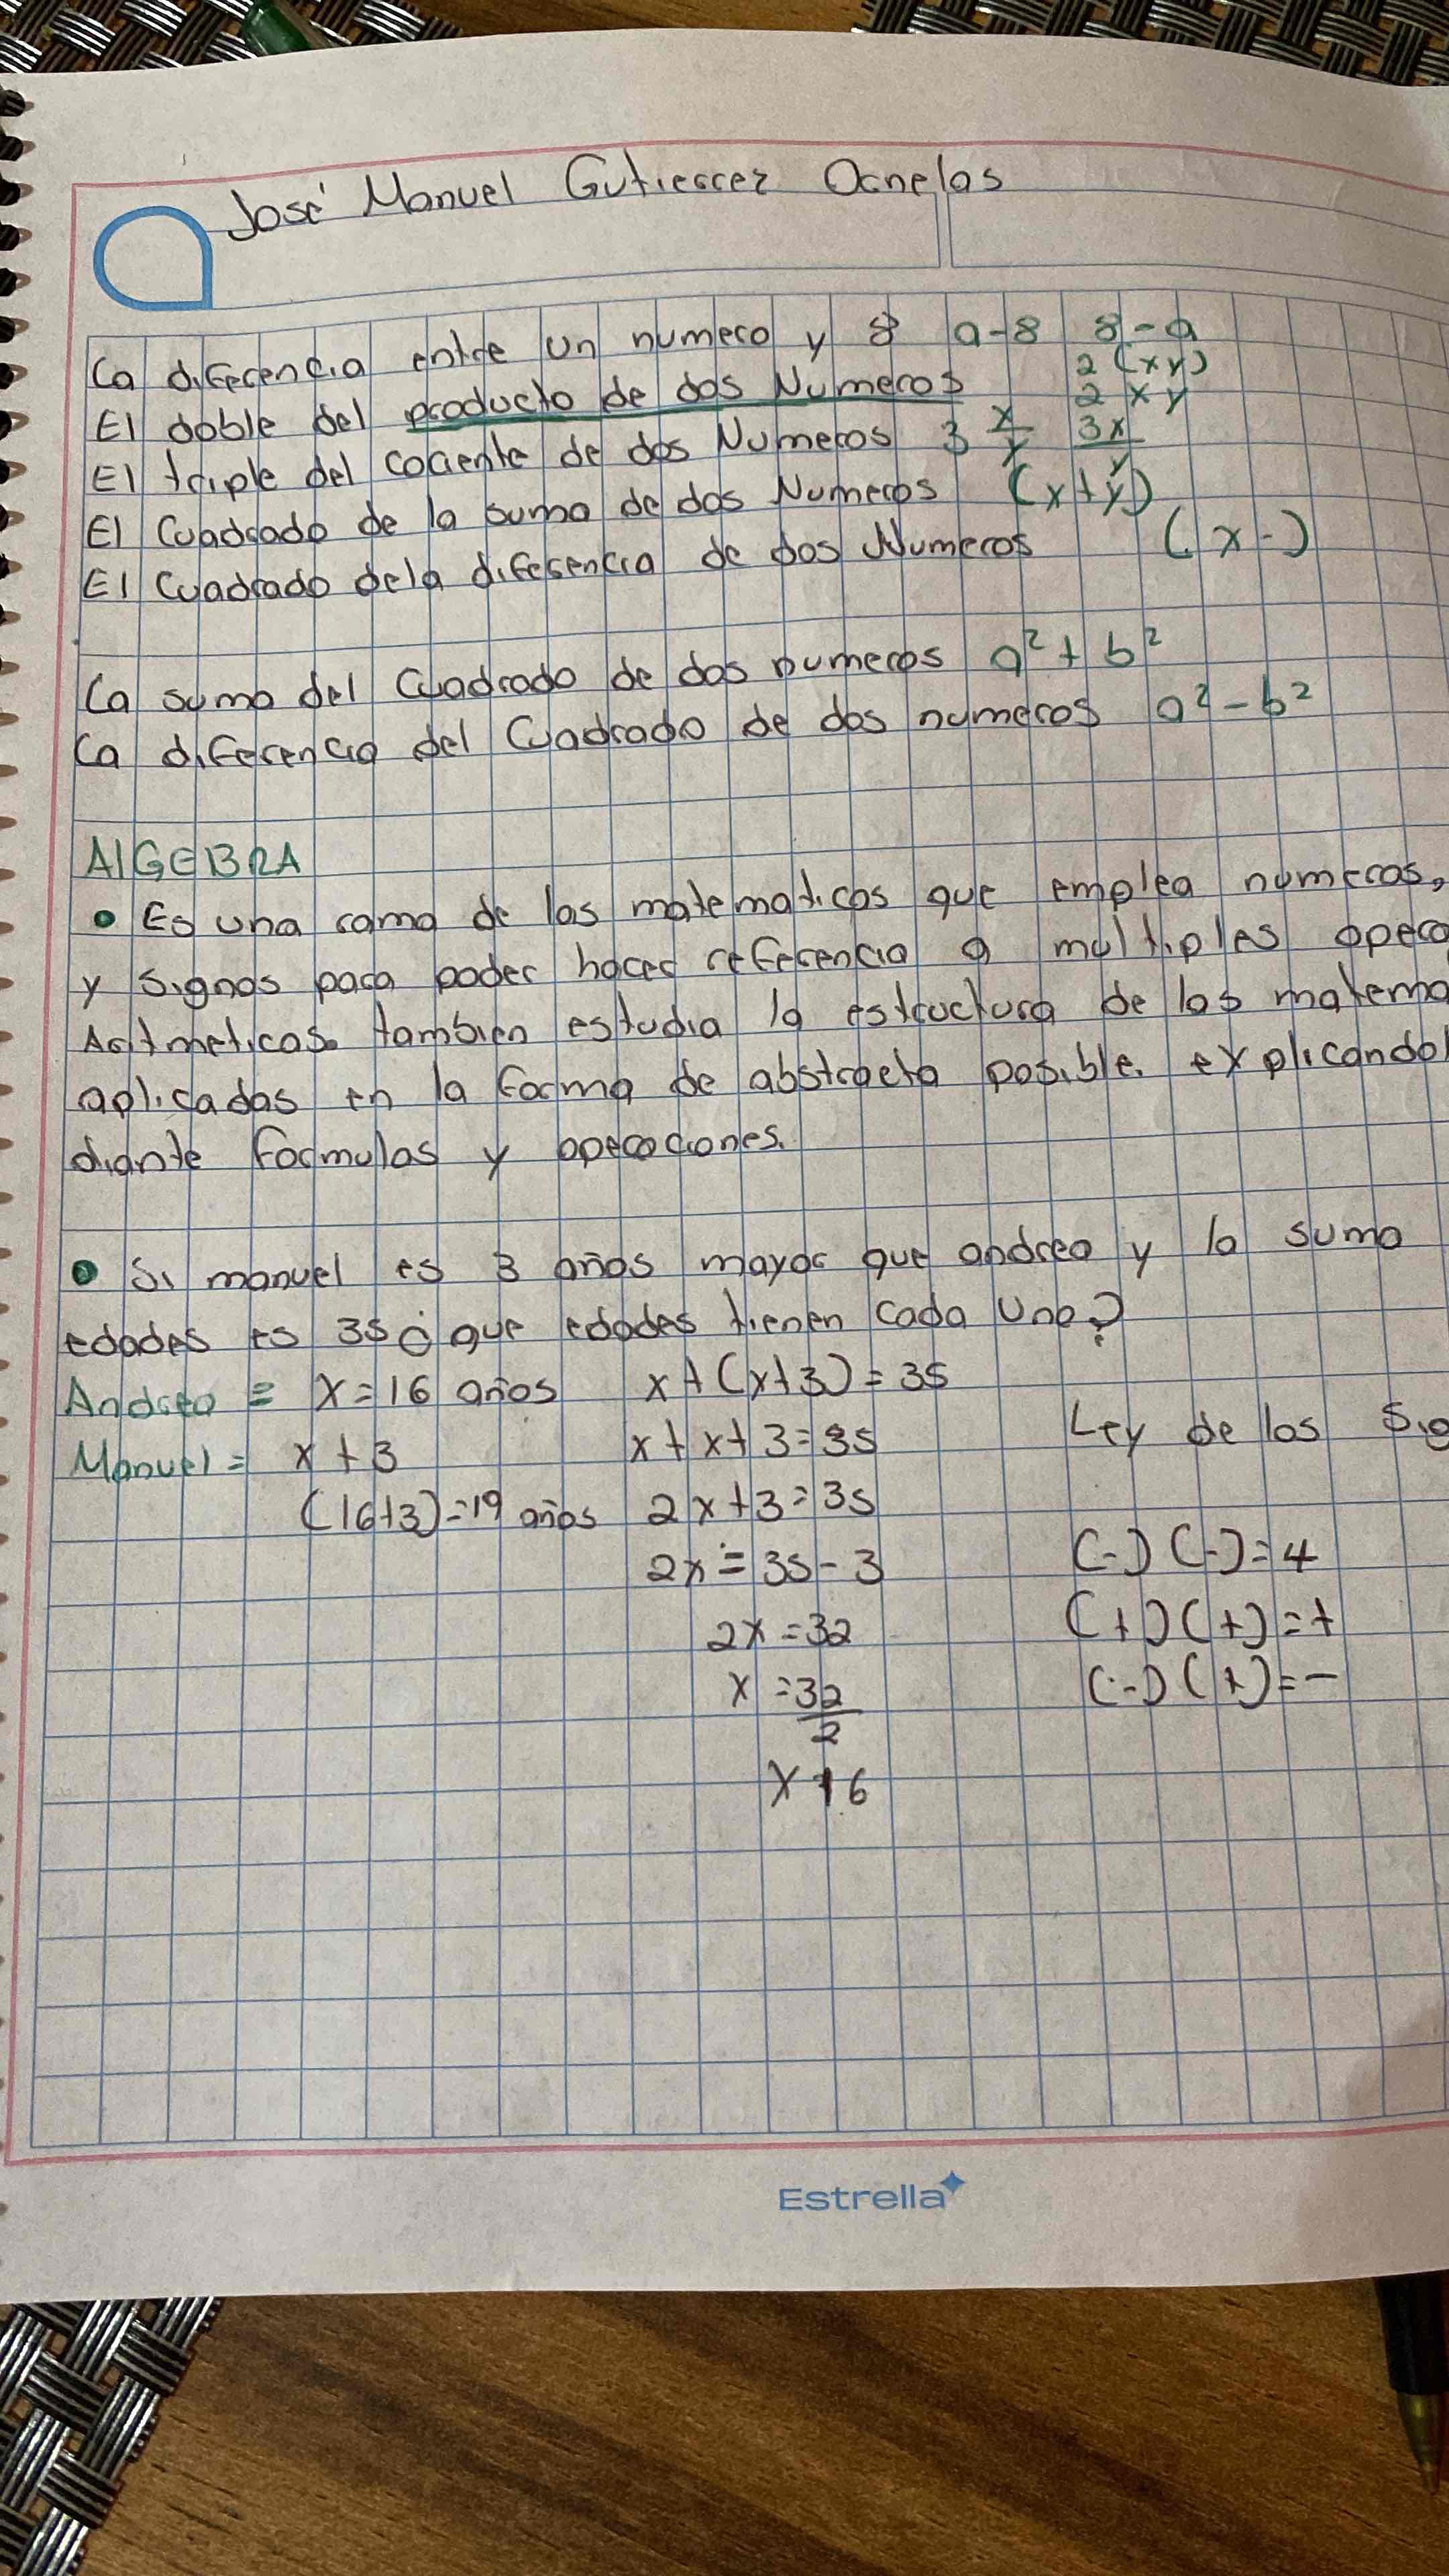 José Manuel Gutierrez Ornelas
La diferencia entre un numero y 8 a-8 8-a
El doble del producto de dos Numeros 2(xy) 2xy
El triple del cociente de dos Numeros 3 x/y 3x/y
El Cuadrado de la suma de dos Numeros (x+y)
El Cuadrado dela diferencia de dos Numeros (x-)
La suma del Cuadrado de dos numeros a²+b²
La diferencia del Cuadrado de dos numeros a²-b²
AlGEBRA
• Es una rama de las matematicas que emplea numeros,
y signos para poder hacer referencia a multiples opera
Aritmeticas. tambien estudia la estructura de las matema
aplicadas en la forma de abstracta posible. explicandol
diante formulas y operaciones.
• Si manuel es 3 años mayor que andrea y la suma
edades es 35 ¿que edades tienen cada uno?
Andrea = x=16 años x+(x+3)=35
Manuel = x+3 x+x+3=35 Ley de los Sig
(16+3)=19 años 2x+3=35
2x=35-3 (-)(-)=+
2x=32 (+)(+)=+
x=32/2 (-)(+)=-
x 16
Estrella